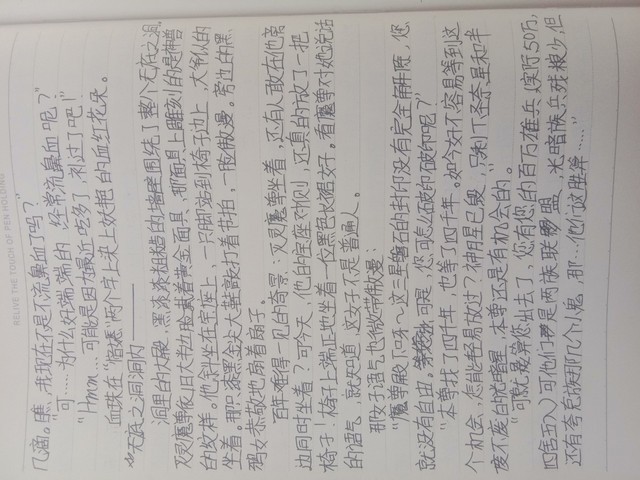 RELIVE THE TOUCH OF PEN HOLDING
几滴。焦,我现在不是不流鼻血了吗?"
可……为什么好端端的 经常流鼻血呢?"
"Hmm……可能是因为最近吃多了,补过了吧!"
血珠在"宿怨"两个字上染上妖艳的血红花朵。
无底之洞洞内——
洞里的大殿,黑漆漆粗糙的墙壁围绕了整个无底之洞。
灵魔尊依旧大半边脸戴着黄金面具,那面具上雕刻的是神兽
的纹样。他斜坐在宝座上,一只脚踩到椅子边上,大爷似的
坐着,那只漆黑金头大鞋敲打着节拍,一脸傲慢。旁边的黑
鸦女恭敬地扇着扇子。
百年难得一见的奇景:灵魔尊坐着,还有人敢在他旁
边同时坐着?可今天,他的宝座对侧,还真的放了一把
椅子!椅子上端正地坐着一位黑色妆裙女子。看魔尊对她说话
的语气,就知道,这女子不是普通人。
那女子语气也微带傲慢:
"魔尊殿下呀~这三星磐石的封印没有完全解开呢,您
就没有自由。可是,您可怎么破印呢?"
"本尊找了四千年,也等了四千年。如今好不容易等到这
个机会、怎能轻易放过?神明星已毁,只剩下圣奈里和半
废不废的光暗界,本尊还是有机会的。"
"可就是算您出去了,您有您的百万雄兵(实际50万,
四舍五入)可他们是两族联盟,光暗族兵残粮少,但
还有夸克族那几个小鬼,那…他们这胜算……"